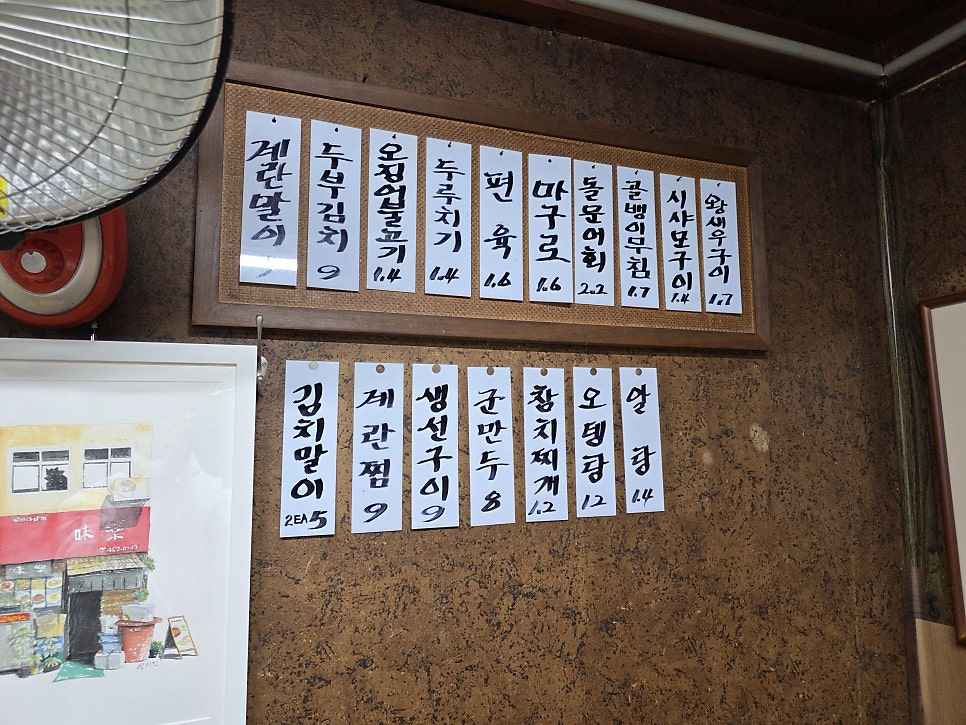 계란말이
두부김치 9
오징어불고기 1.4
두루치기 1.4
편육 1.6
마구로 1.6
돌문어회 2.2
골뱅이무침 1.7
시샤모구이 1.4
왕새우구이 1.7
김치말이 2EA 5
계란찜 9
생선구이 9
군만두 8
참치찌개 1.2
오뎅탕 12
알탕 1.4
味樂